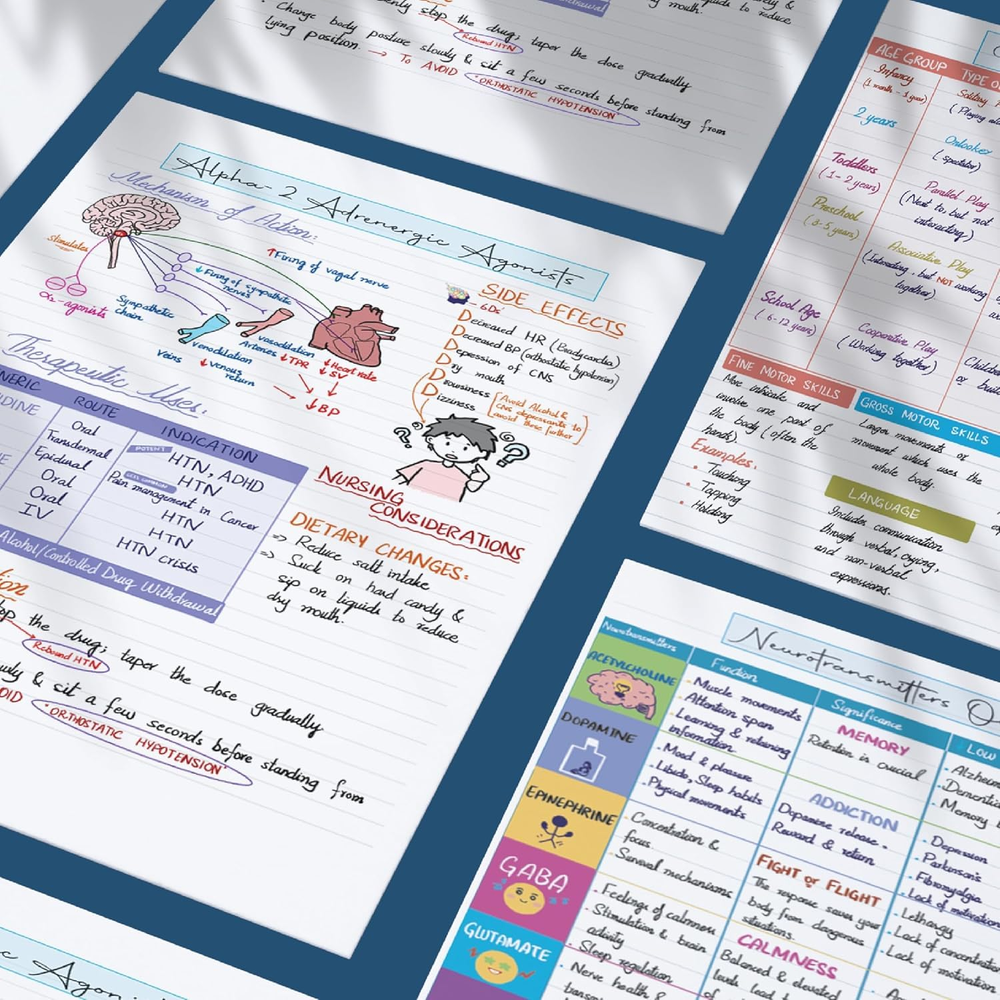 the drug; taper the dose gradually
Rebound HTN
Change body posture slowly & sit a few seconds before standing from
lying position. → To AVOID "ORTHOSTATIC HYPOTENSION"
mouth.
to reduce
Alpha-2 Adrenergic Agonists
Mechanism of Action:
stimulates
α2-agonists
Sympathetic
chain
↑Firing of vagal nerve
↓Firing of sympathetic
nerves
Veins
venodilation
↓venous
return
Arteries
vasodilation
↓TPR
↓Heart rate
↓SV
↓BP
SIDE EFFECTS
6Ds
Decreased HR (Bradycardia)
Decreased BP (othostatic hypotension)
Depression of CNS
Dry mouth
Drowsiness
Dizziness
Avoid Alcohol &
CNS depressants to
avoid these further
Therapeutic Uses:
NERIC ROUTE INDICATION
IDINE
NE
Oral
Transdermal
Epidural
Oral
Oral
IV
POTENT
HTN, ADHD
HTN
LESS COMMON
Pain management in Cancer
HTN
HTN
HTN CRISIS
Alcohol/Controlled Drug Withdrawal
NURSING
CONSIDERATIONS
DIETARY CHANGES:
=> Reduce salt intake
=> Suck on hard candy &
sip on liquids to reduce
dry mouth.
tion
top the drug; taper the dose gradually
Rebound HTN
wly & sit a few seconds before standing from
OID "ORTHOSTATIC HYPOTENSION"
c Agoni
AGE GROUP TYPE O
Infancy
(1 month - 1 year)
Solitary
(Playing al
2 years
Onlooker
(spectator)
Toddlers
(1-2 years)
Parallel Play
(Next to, but not
interacting)
Preschool
(3-5 years)
Associative Play
(Interacting, but NOT working
together)
School Age
(6-12 years)
Cooperative Play
(Working together)
FINE MOTOR SKILLS
More intricate and
involve one part of
the body (often the
hands).
Examples:
• Touching
• Tapping
• Holding
GROSS MOTOR SKILLS
Larger movements or
movement which uses the
whole body.
LANGUAGE
Includes communication
through verbal, crying,
and non-verbal
expressions.
Neurotransmitters O
Neurotransmitters Function Significance Low
ACETYLCHOLINE
- Muscle movements
- Attention span
- Learning & retaining
information
MEMORY
Retention is crucial
- Alzheim
- Dementia
- Memory
DOPAMINE
- Mood & pleasure
- Libido, Sleep habits
- Physical movements
ADDICTION
Dopamine release -
Reward & return
- Depression
- Parkinson's
- Fibromyalgia
- Lack of motivation
EPINEPHRINE
- Concentration &
focus
- Survival mechanisms
FIGHT or FLIGHT
The response saves your
body from dangerous
situations.
- Lethargy
- Lack of concentration
- Lack of motivation
GABA
- Feelings of calmness
- Stimulation & brain
activity
- Sleep regulation
CALMNESS
Balanced & elevated
GLUTAMATE
- Nerve health &